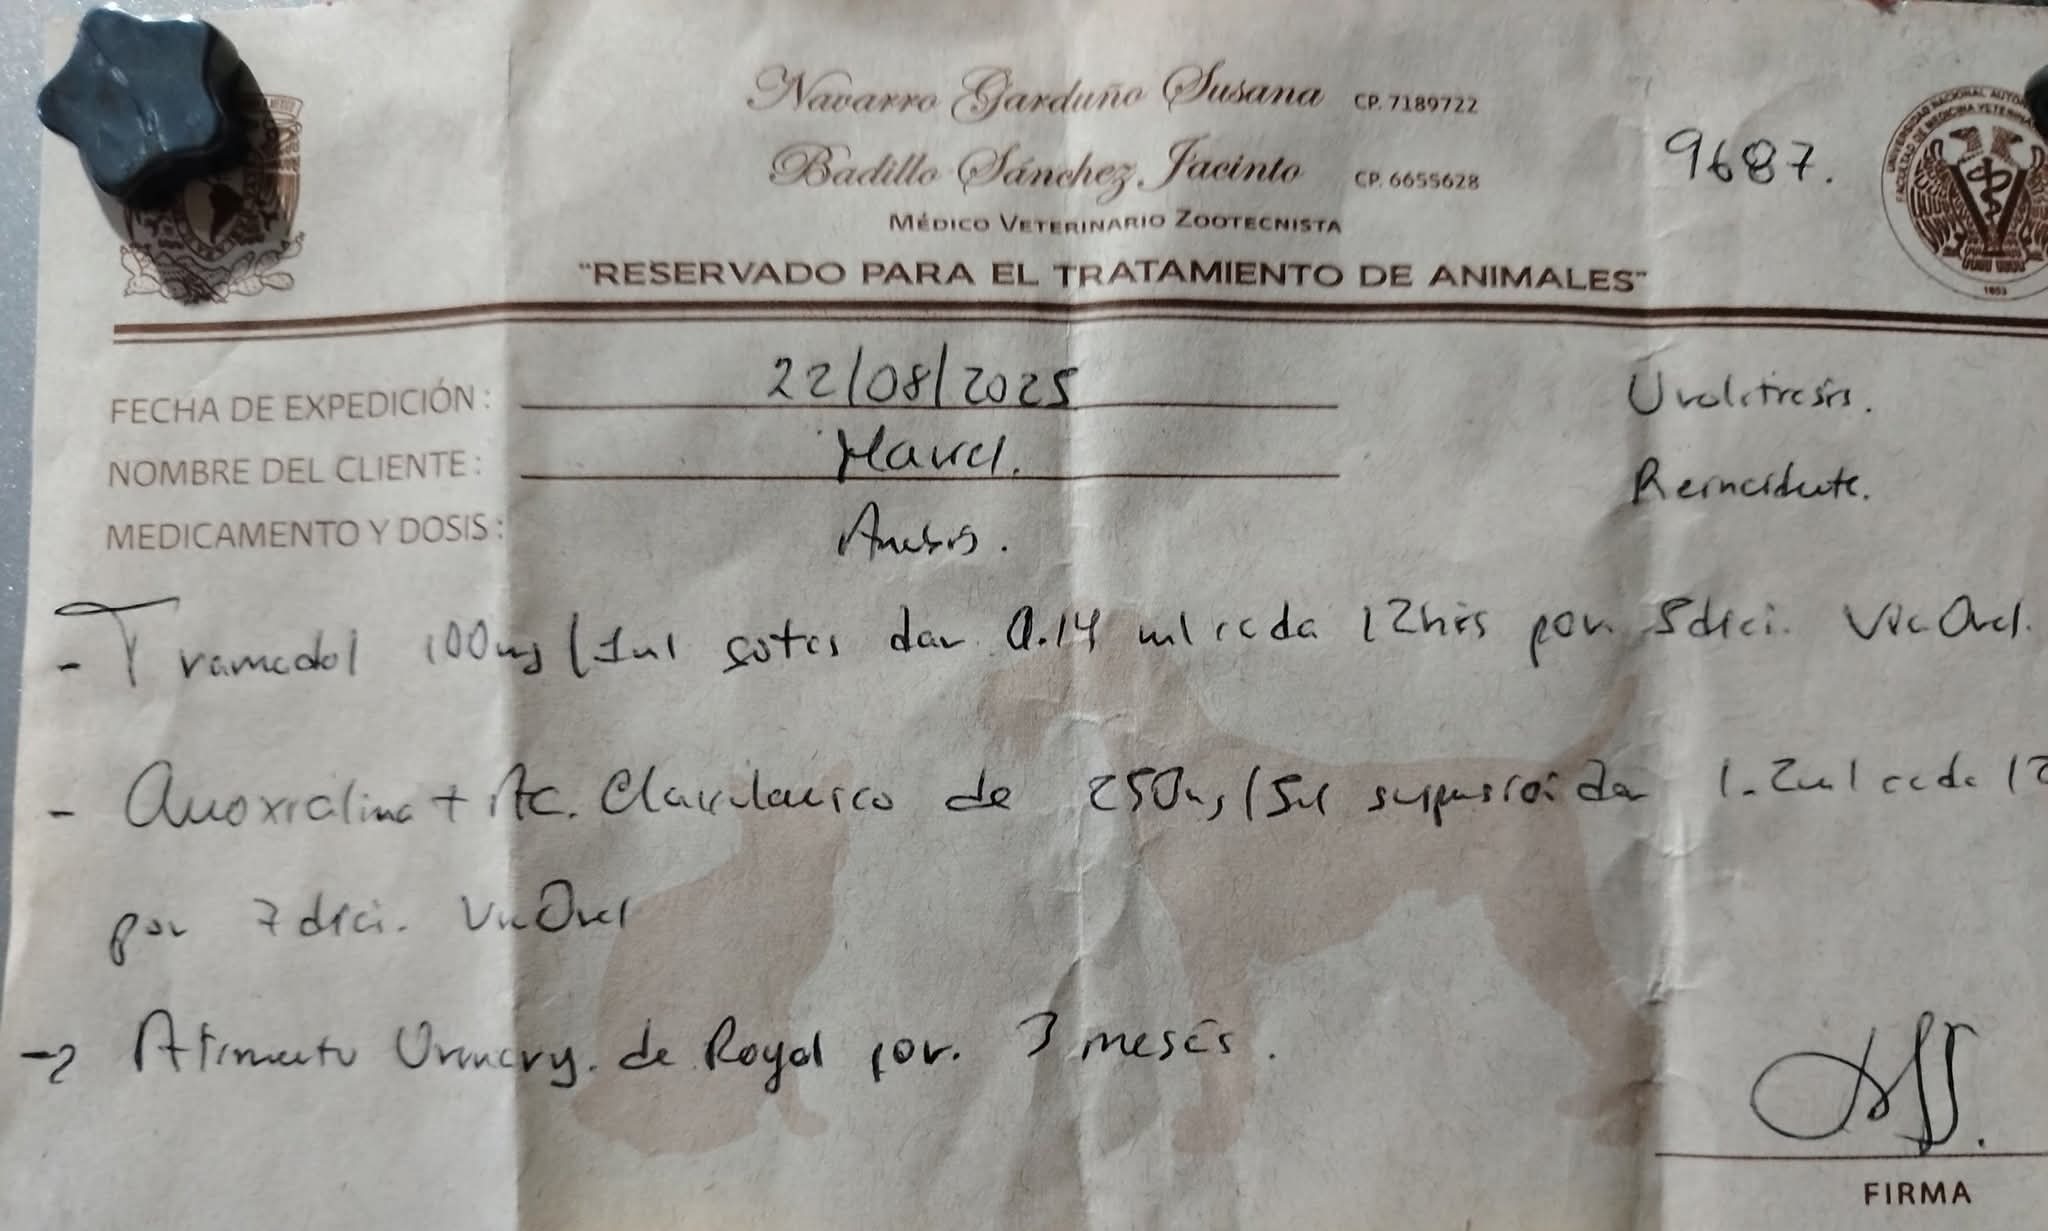 Navarro Garduño Susana CP. 7189722
Badillo Sánchez Jacinto CP. 6655628
9687.
MÉDICO VETERINARIO ZOOTECNISTA
"RESERVADO PARA EL TRATAMIENTO DE ANIMALES"
UNIVERSIDAD NACIONAL AUTÓ
FACULTAD DE MEDICINA VETERINA
1853
FECHA DE EXPEDICIÓN: 22/08/2025 Urolitiasis.
NOMBRE DEL CLIENTE:
Reincidente.
MEDICAMENTO Y DOSIS:
- Tramadol 100mg/1ml gotas dar 0.14 ml cada 12hrs por 5 días. Vía Oral.
- Amoxicilina + Ac. Clavulanico de 250mg/5ml suspensión dar 1.2ml cada 12
por 7 días. Vía Oral
-> Alimento Urinary. de Royal por. 3 meses.
FIRMA